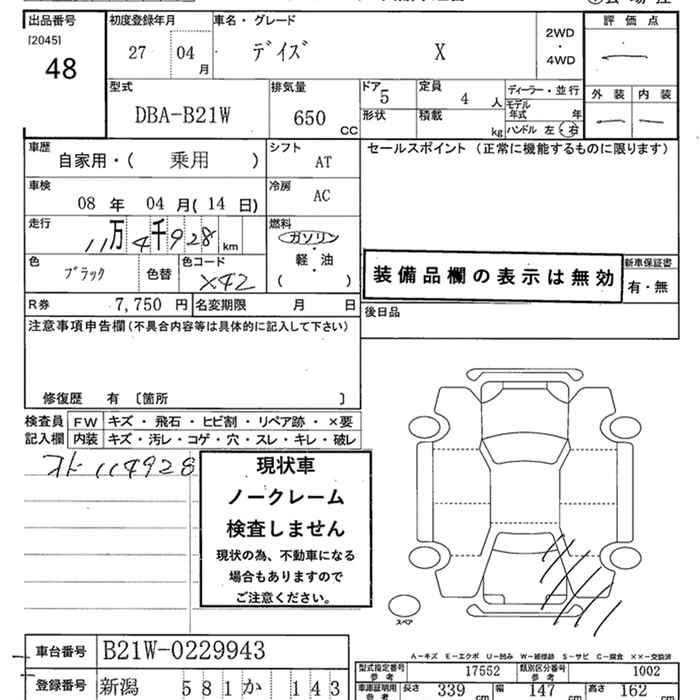 出品番号 初度登録年月 車名・グレード 評価点
[2045] 48
27 04 月 デイズ X 2WD・4WD
外装 内装
型式 DBA-B21W 排気量 650 CC
ドア 5 定員 4 人 ディーラー・並行
形状 積載 kg モデル年式 年
ハンドル 左・右
車歴 自家用・( 乗用 ) シフト AT
セールスポイント (正常に機能するものに限ります)
車検 08 年 04 月( 14 日) 冷房 AC
走行 11万4千928 km 燃料 ガソリン・軽・油 ( )
色 ブラック 色替 色コード X42
装備品欄の表示は無効
新車保証書 有・無
R券 7,750 円 名変期限 月 日
後日品
注意事項申告欄(不具合内容等は具体的に記入して下さい)
修復歴 有 〔箇所 〕
検査員記入欄 FW キズ・飛石・ヒビ割・リペア跡・×要
内装 キズ・汚レ・コゲ・穴・スレ・キレ・破レ
オド114928
現状車
ノークレーム
検査しません
現状の為、不動車になる
場合もありますので
ご注意ください。
スペア
A-キズ E-エクボ U-凹み W-補修跡 S-サビ C-腐食 ××-交換済
車台番号 B21W-0229943
型式指定番号 参考 17552 類別区分番号 参考 1002
登録番号 新潟 581 か 143
車庫証明用 参考 長さ 339 cm 幅 147 cm 高さ 162 cm